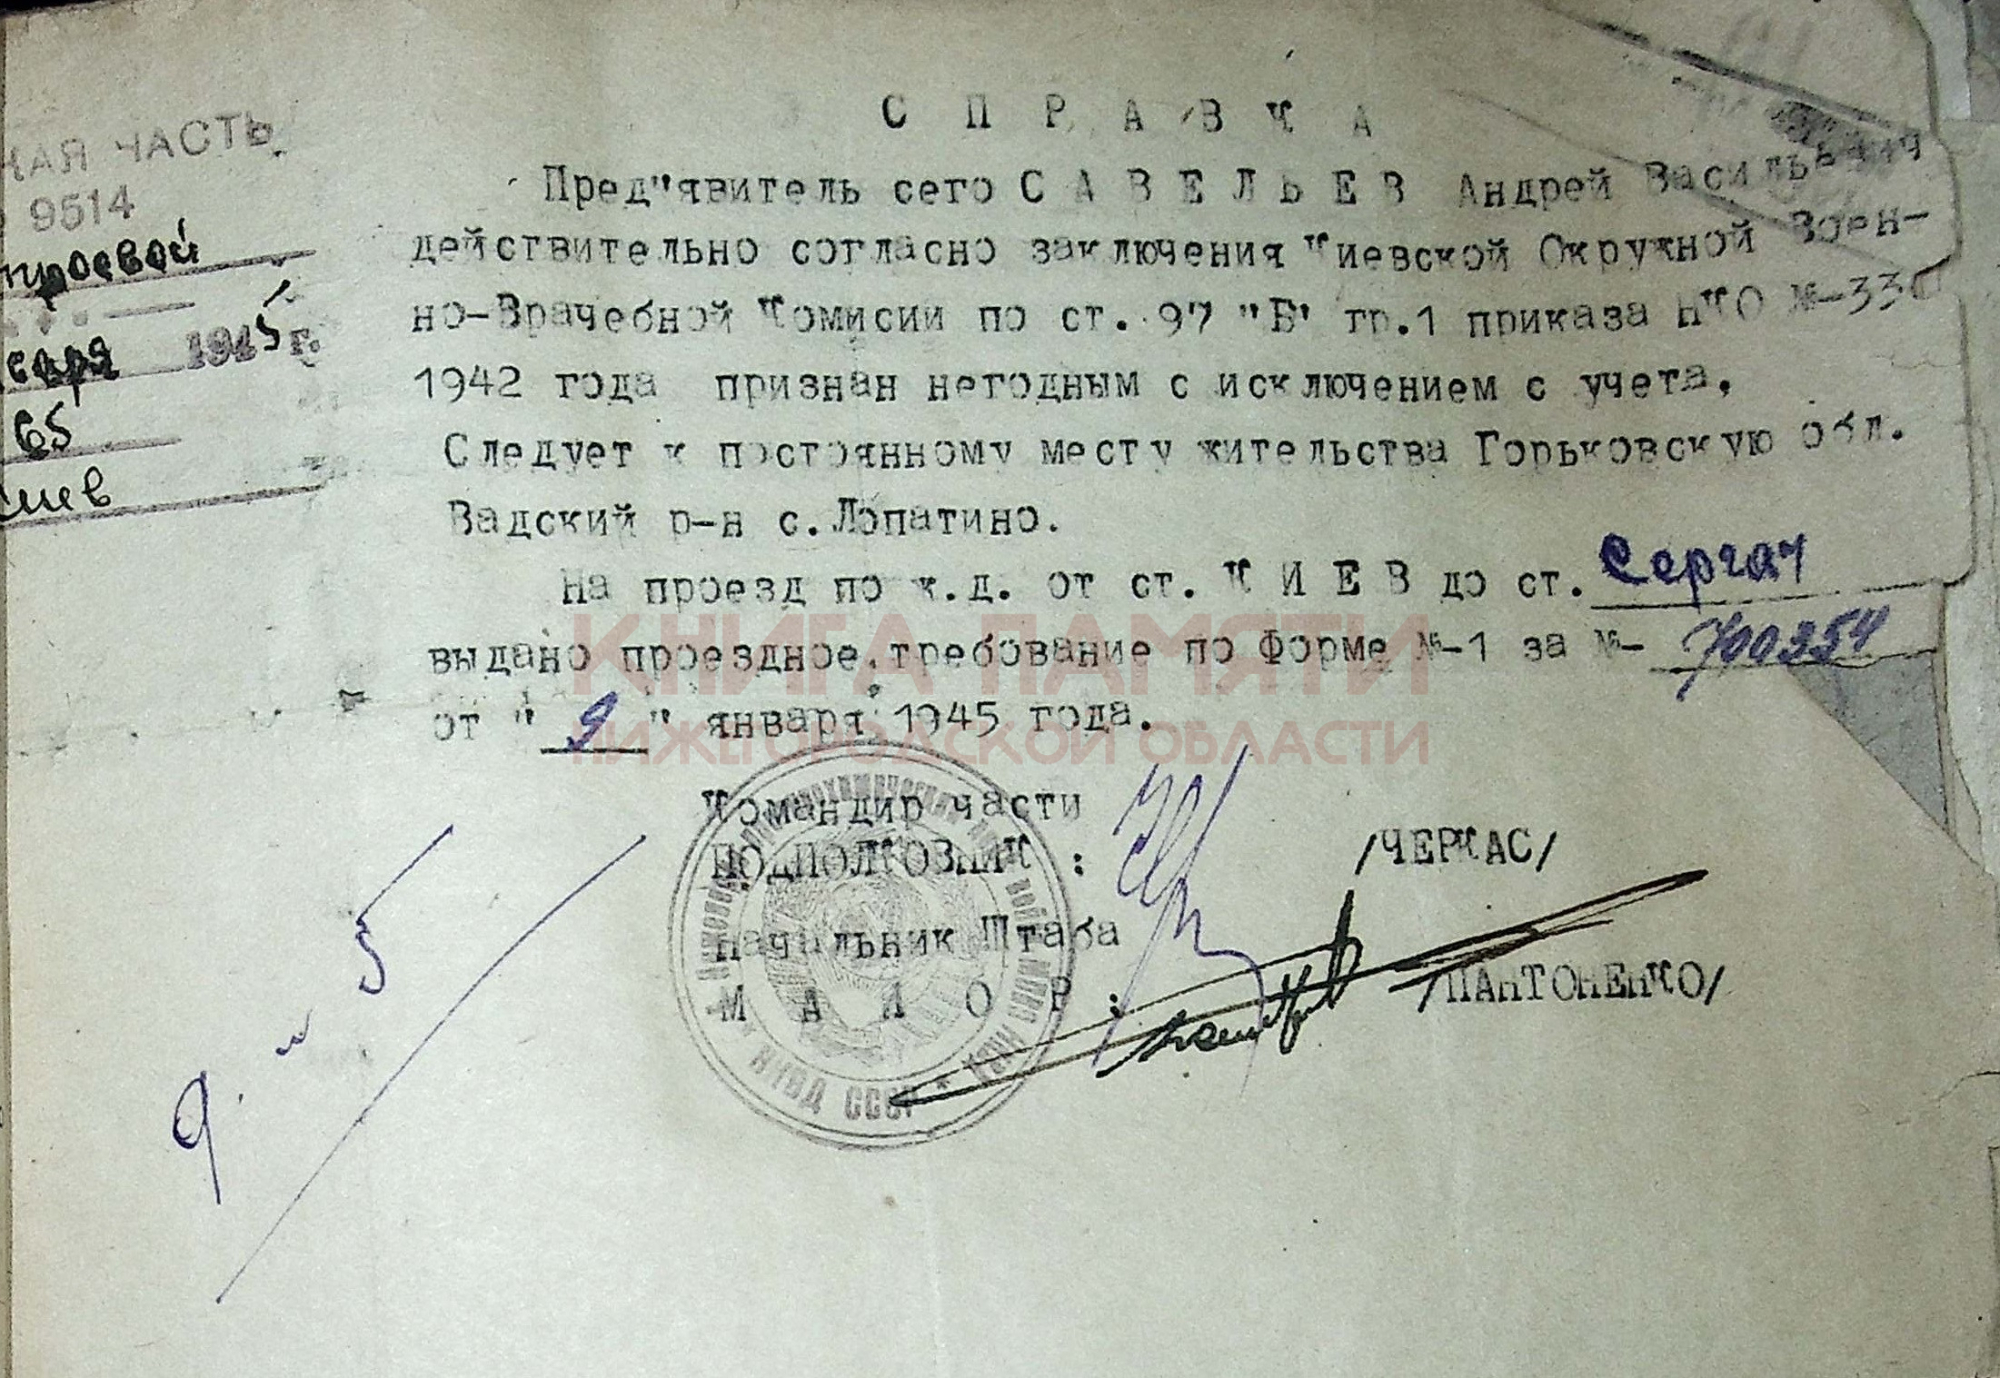 С П Р А В К А
НАЯ ЧАСТЬ
9514
Пред"явитель сего С А В Е Л Ь Е В Андрей Васильевич
действительно согласно заключения Киевской Окружной Воен-
но-Врачебной Комисии по ст. 97 "Б" гр.1 приказа НКО №-336
1945 г.
1942 года признан негодным с исключением с учета,
65
Следует к постоянному месту жительства Горьковскую обл.
Вадский р-н с.Лопатино.
На проезд по ж.д. от ст. К И Е В до ст. Сергач
выдано проездное требование по Форме №-1 за №- 700354
от "9" января 1945 года.
КНИГА ПАМЯТИ
НИЖЕГОРОДСКОЙ ОБЛАСТИ
Командир части
ПОДПОЛКОВНИК : /ЧЕРКАС/
Начальник Штаба
М А Й О Р : /ПАНТОНЕНКО/
НКВД СССР